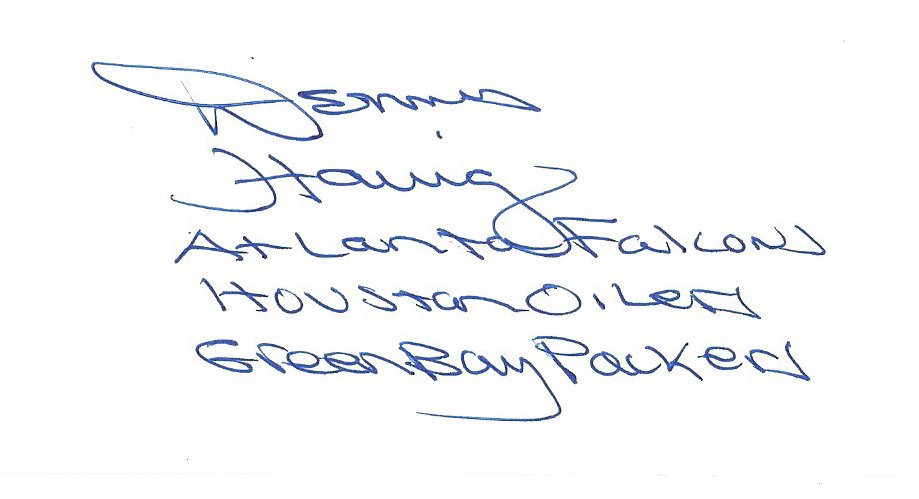 Dennis
Havig
Atlanta Falcons
Houston Oilers
Green Bay Packers